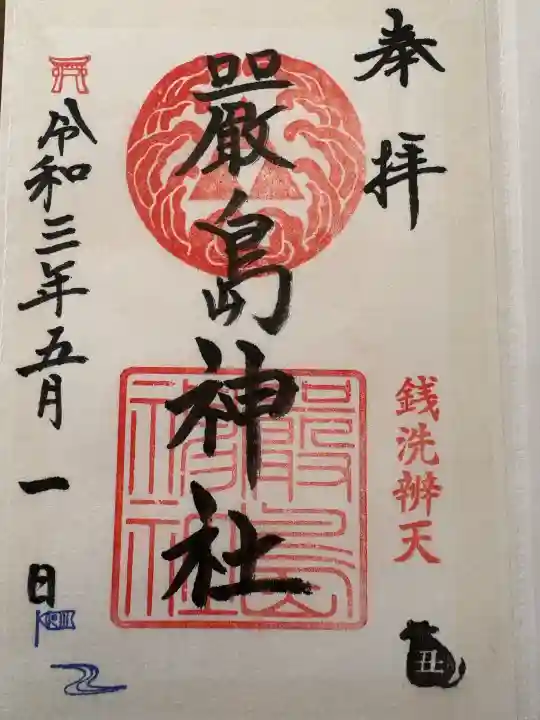 奉拝
銭洗辨天
丑
嚴島神社
嚴島神社
令和三年五月一日